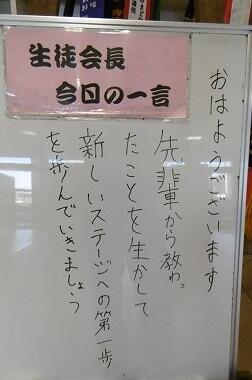 生徒会長
今日の一言
おはようございます
先輩から教わっ
たことを生かして
新しいステージへの第一歩
を歩んでいきましょう